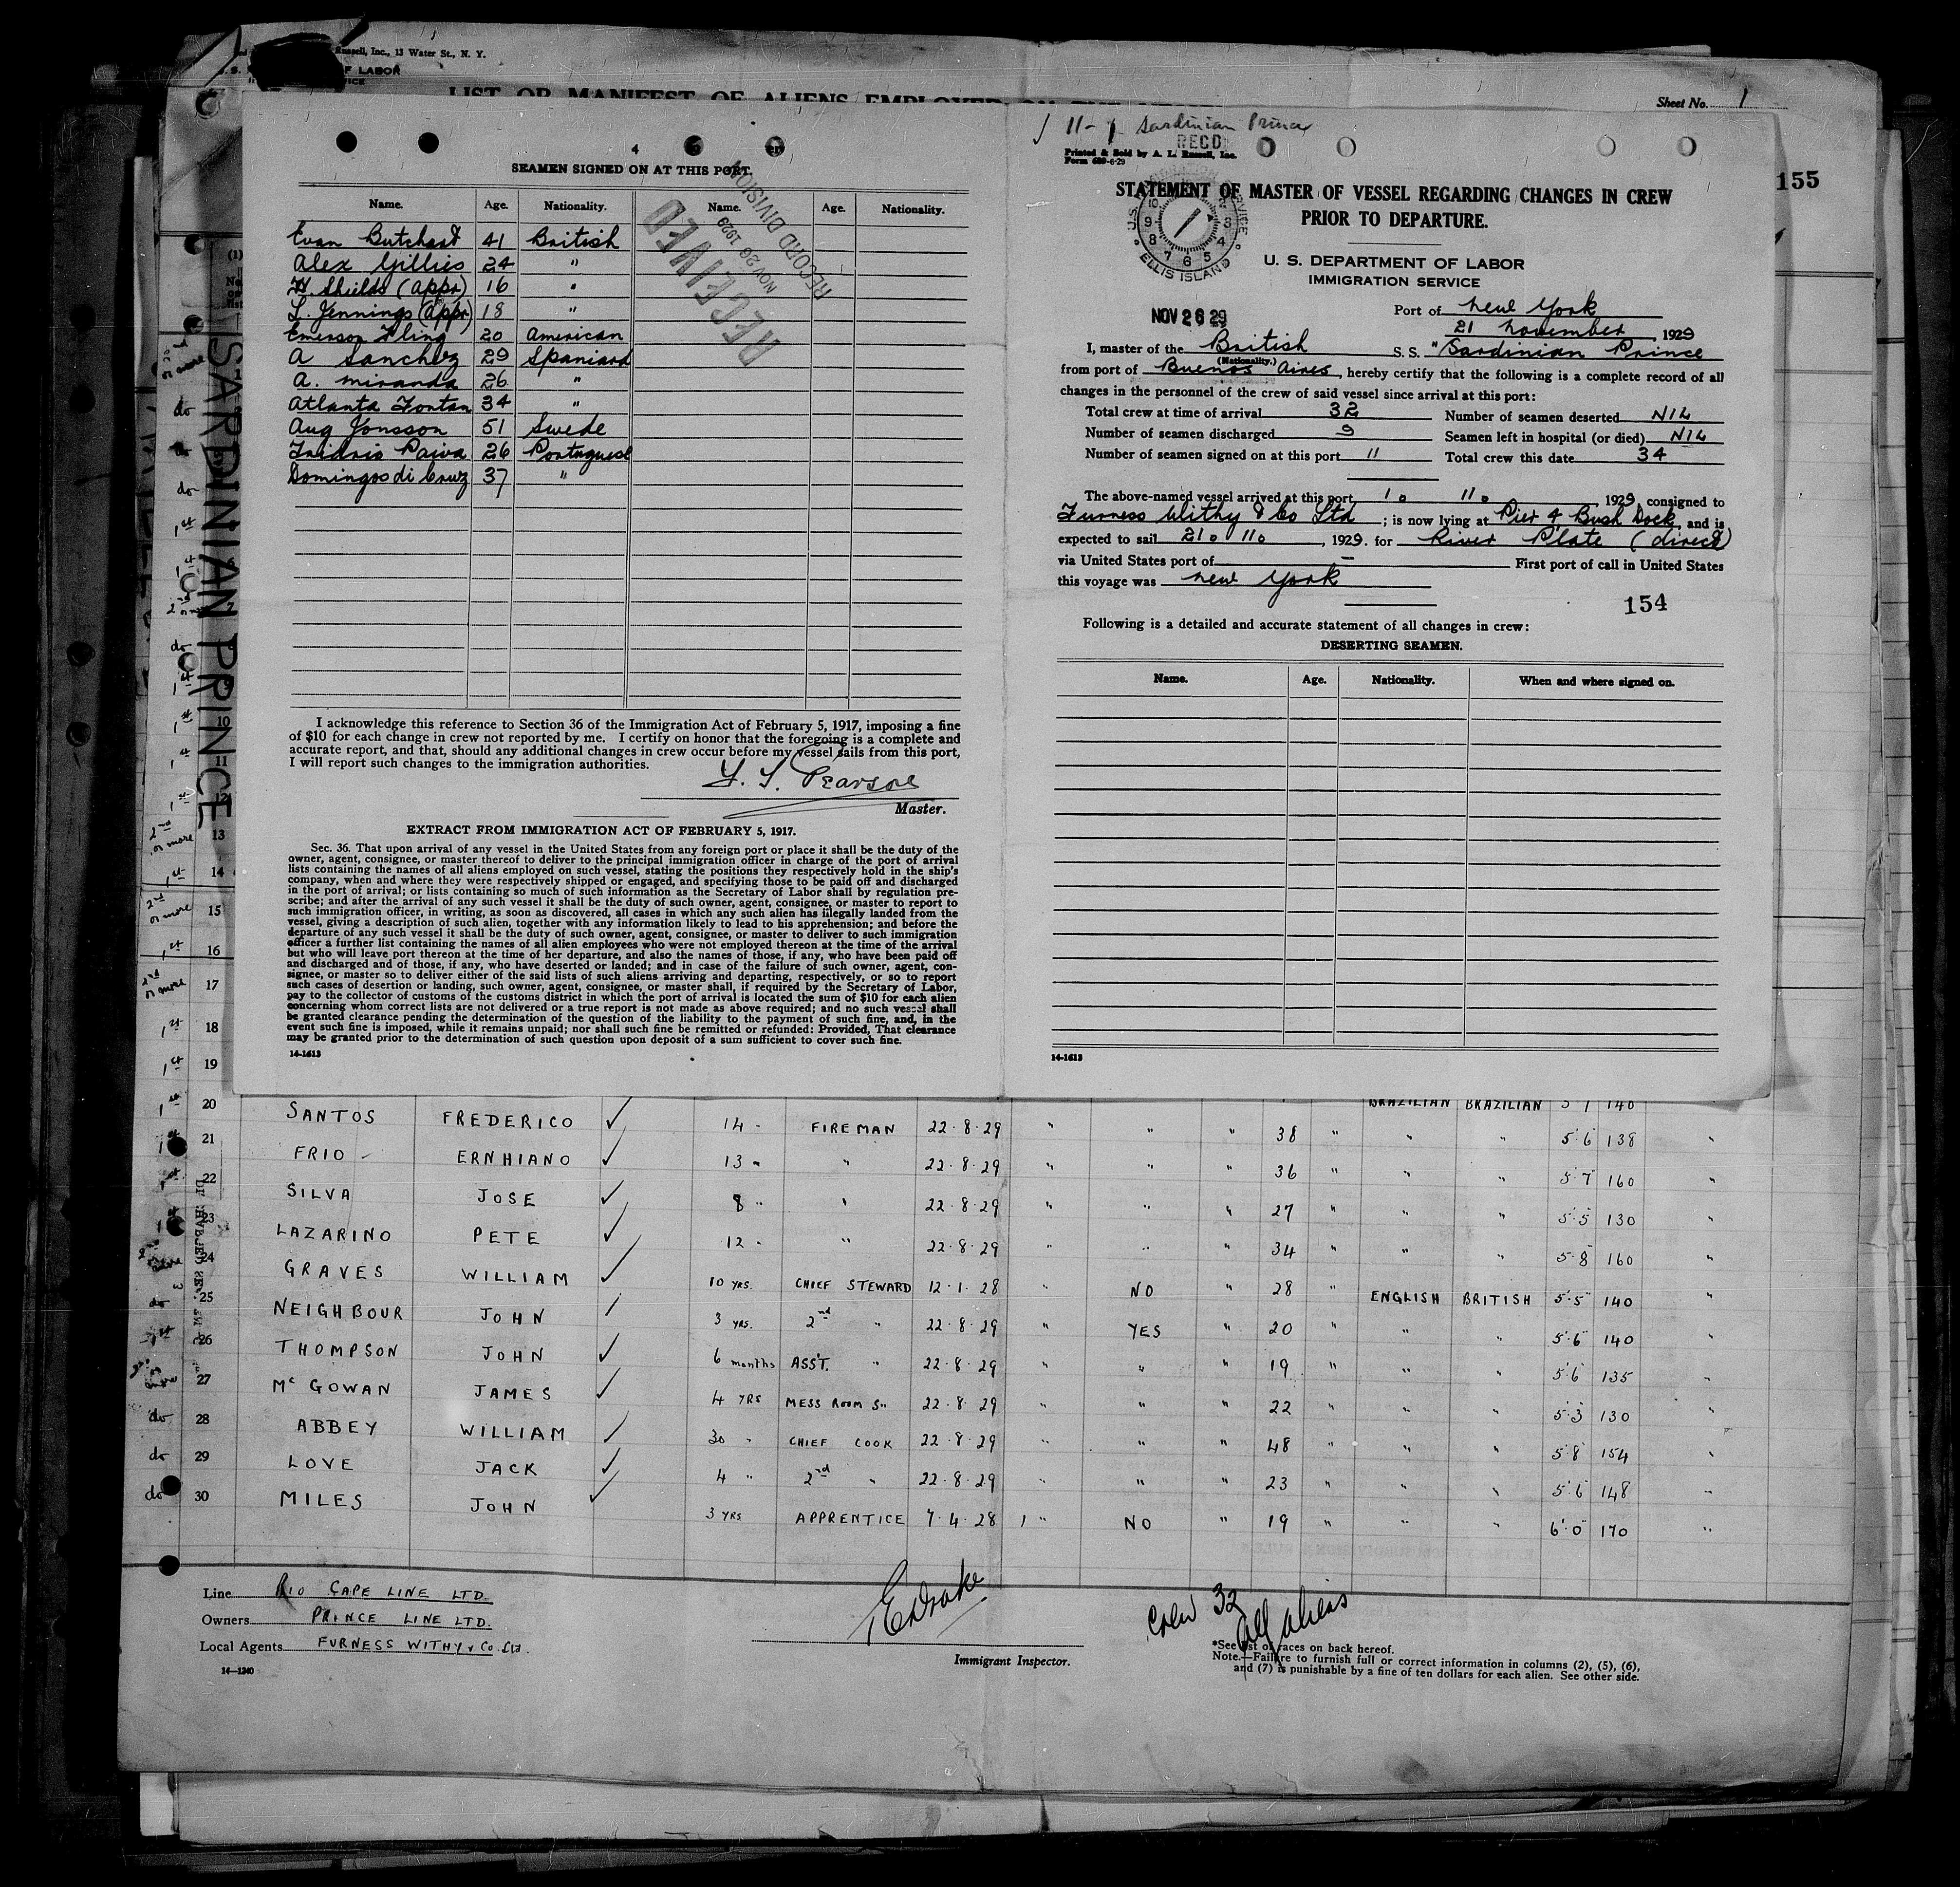 Russell, Inc., 13 Water St., N. Y.
OF LABOR
LIST OR MANIFEST OF ALIENS EMPLOYED ON THE VESSEL
Sheet No. 1
155
SARDINIAN PRINCE
SEAMEN SIGNED ON AT THIS PORT.
Name. Age. Nationality. Name. Age. Nationality.
RECEIVED
NOV 26 1929
RECORD DIVISION
Evan Butchard 41 British
Alex Gillies 24 "
H. Shields (appr) 16 "
L. Jennings (appr) 18 "
Emerson Fling 20 American
A Sanchez 29 Spaniard
A. Miranda 26 "
Atlanta Fontan 34 "
Aug Jonsson 51 Swede
Paiva 26 Portuguese
Domingos di Cruz 37 "
I acknowledge this reference to Section 36 of the Immigration Act of February 5, 1917, imposing a fine
of $10 for each change in crew not reported by me. I certify on honor that the foregoing is a complete and
accurate report, and that, should any additional changes in crew occur before my vessel sails from this port,
I will report such changes to the immigration authorities.
Pearson
Master.
EXTRACT FROM IMMIGRATION ACT OF FEBRUARY 5, 1917.
Sec. 36. That upon arrival of any vessel in the United States from any foreign port or place it shall be the duty of the
owner, agent, consignee, or master thereof to deliver to the principal immigration officer in charge of the port of arrival
lists containing the names of all aliens employed on such vessel, stating the positions they respectively hold in the ship's
company, when and where they were respectively shipped or engaged, and specifying those to be paid off and discharged
in the port of arrival; or lists containing so much of such information as the Secretary of Labor shall by regulation pre-
scribe; and after the arrival of any such vessel it shall be the duty of such owner, agent, consignee, or master to report to
such immigration officer, in writing, as soon as discovered, all cases in which any such alien has illegally landed from the
vessel, giving a description of such alien, together with any information likely to lead to his apprehension; and before the
departure of any such vessel it shall be the duty of such owner, agent, consignee, or master to deliver to such immigration
officer a further list containing the names of all alien employees who were not employed thereon at the time of the arrival
but who will leave port thereon at the time of her departure, and also the names of those, if any, who have been paid off
and discharged and of those, if any, who have deserted or landed; and in case of the failure of such owner, agent, con-
signee, or master so to deliver either of the said lists of such aliens arriving and departing, respectively, or so to report
such cases of desertion or landing, such owner, agent, consignee, or master shall, if required by the Secretary of Labor,
pay to the collector of customs of the customs district in which the port of arrival is located the sum of $10 for each alien
concerning whom correct lists are not delivered or a true report is not made as above required; and no such vessel shall
be granted clearance pending the determination of the question of the liability to the payment of such fine, and, in the
event such fine is imposed, while it remains unpaid; nor shall such fine be remitted or refunded: Provided, That clearance
may be granted prior to the determination of such question upon deposit of a sum sufficient to cover such fine.
14-1613
11-1 Sardinian Prince
RECD
Printed & Sold by A. L. Russell, Inc.
Form 689-6-29
STATEMENT OF MASTER OF VESSEL REGARDING CHANGES IN CREW
PRIOR TO DEPARTURE.
ELLIS ISLAND
U. S. DEPARTMENT OF LABOR
IMMIGRATION SERVICE
NOV 26 29
Port of New York
21 November, 1929
I, master of the British S. S. "Sardinian Prince
(Nationality.)
from port of Buenos Aires, hereby certify that the following is a complete record of all
changes in the personnel of the crew of said vessel since arrival at this port:
Total crew at time of arrival 32 Number of seamen deserted NIL
Number of seamen discharged 9 Seamen left in hospital (or died) NIL
Number of seamen signed on at this port 11 Total crew this date 34
The above-named vessel arrived at this port 10 110 1929, consigned to
Furness Withy & Co Ltd; is now lying at Pier 4 Bush Dock, and is
expected to sail 210 110, 1929. for River Plate (direct)
via United States port of — First port of call in United States
this voyage was New York
154
Following is a detailed and accurate statement of all changes in crew:
DESERTING SEAMEN.
Name. Age. Nationality. When and where signed on.
14-1613
BRAZILIAN BRAZILIAN 5 7 140
20 SANTOS FREDERICO 14 " FIREMAN 22·8·29 " " " 38 " " " 5·6 138 "
21 FRIO ERNHIANO 13 " " 22·8·29 " " " 36 " " " 5·7 160 "
22 SILVA JOSE 8 " " 22·8·29 " " " 27 " " " 5·5 130 "
23 LAZARINO PETE 12 " " 22·8·29 " " " 34 " " " 5·8 160 "
24 GRAVES WILLIAM 10 YRS. CHIEF STEWARD 12·1·28 " NO " 28 " ENGLISH BRITISH 5·5 140 "
25 NEIGHBOUR JOHN 3 YRS. 2nd " 22·8·29 " YES " 20 " " " 5·6 140 "
26 THOMPSON JOHN 6 months ASS'T. " 22·8·29 " " " 19 " " " 5·6 135 "
27 McGOWAN JAMES 4 YRS MESS ROOM S" 22·8·29 " " " 22 " " " 5·3 130 "
28 ABBEY WILLIAM 30 " CHIEF COOK 22·8·29 " " " 48 " " " 5·8 154 "
29 LOVE JACK 4 " 2nd " 22·8·29 " " " 23 " " " 5·6 148 "
30 MILES JOHN 3 YRS APPRENTICE 7·4·28 1 " NO " 19 " " " 6·0 170 "
Line RIO CAPE LINE LTD.
Owners PRINCE LINE LTD.
Local Agents FURNESS WITHY & Co Ltd.
14—1240
E Drake
Immigrant Inspector.
Crew 32
all aliens
*See list of races on back hereof.
Note.—Failure to furnish full or correct information in columns (2), (5), (6),
and (7) is punishable by a fine of ten dollars for each alien. See other side.